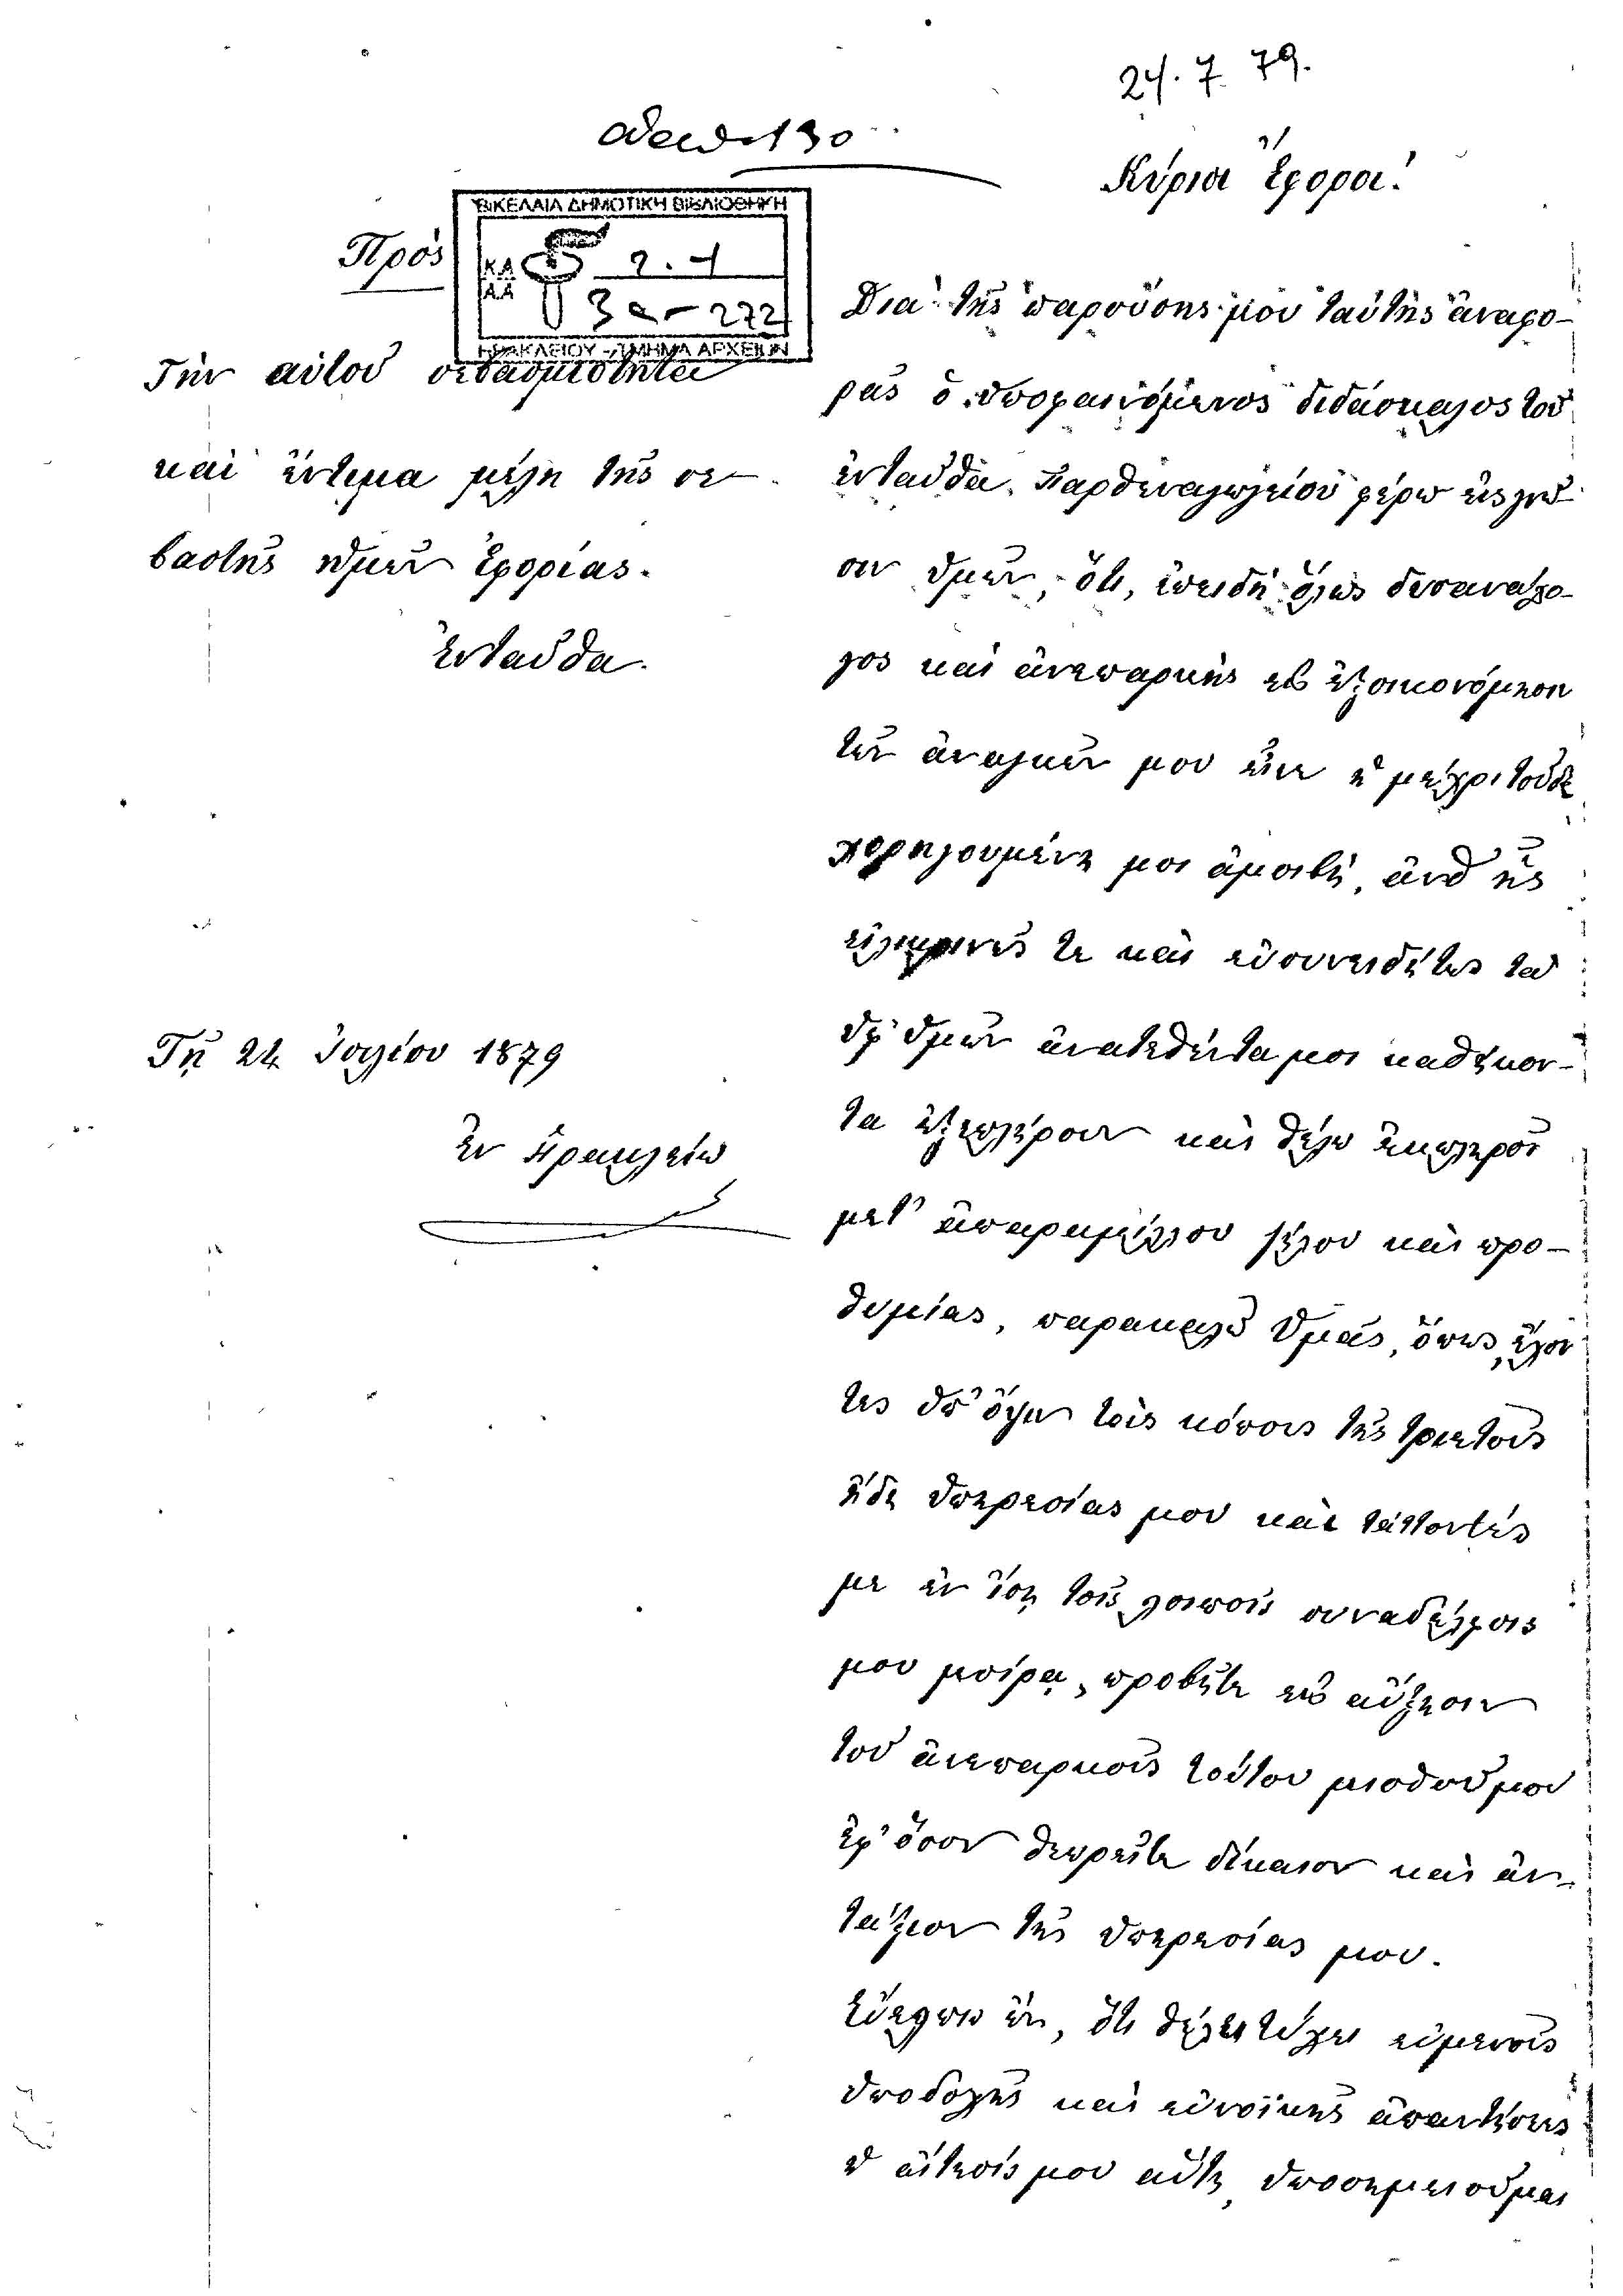 24. 7 79.
130
Κύριοι Ἔφοροι!
Πρὸς
ΒΙΚΕΛΑΙΑ ΔΗΜΟΤΙΚΗ ΒΙΒΛΙΟΘΗΚΗ
Κ.Δ
Α.Α
3α-272
ΗΡΑΚΛΕΙΟΥ - ΤΜΗΜΑ ΑΡΧΕΙΩΝ
Τὴν αὐτοῦ σεβασμιότητα
καὶ ἔντιμα μέλη τῆς σε-
βαστῆς ὑμῶν Ἐφορίας.
Ἐνταῦθα.
Τῇ 24 Ἰουλίου 1879
Ἐν Ἡρακλείῳ
Διὰ τῆς παρούσης μου ταύτης ἀναφο-
ρᾶς ὁ ὑποφαινόμενος διδάσκαλος τοῦ
ἐνταῦθα Παρθεναγωγείου φέρω εἰς γνῶ-
σιν ὑμῶν, ὅτι, ἐπειδὴ ὅλως δυσανάλο-
γος καὶ ἀνεπαρκὴς εἰς ἐξοικονόμησιν
τῶν ἀναγκῶν μου εἶνε ἡ μέχρι τοῦδε
χορηγουμένη μοι ἀμοιβή, ἀνθ' ἧς
εἰλικρινῶς τε καὶ εὐσυνειδήτως τὰ
ὑφ' ὑμῶν ἀνατεθέντα μοι καθήκον-
τα ἐξεπλήρουν καὶ θέλω ἐκπληροῖ
μετ' ἀπαραμίλλου ζήλου καὶ προ-
θυμίας, παρακαλῶ ὑμᾶς, ὅπως, ἔχον
τες ὑπ' ὄψιν τοὺς κόπους τῆς τριετοῦς
ἤδη ὑπηρεσίας μου καὶ τάττοντές
με ἐν ἴσῃ τοῖς λοιποῖς συναδέλφοις
μου μοίρᾳ, προβῆτε εἰς αὔξησιν
τοῦ ἀνεπαρκοῦς τούτου μισθοῦ μου
ἐφ' ὅσον θεωρεῖτε δίκαιον καὶ ἀν-
τάξιον τῆς ὑπηρεσίας μου.
Εὔελπις ὤν, ὅτι θέλει τύχει εὐμενοῦς
ὑποδοχῆς καὶ εὐνοϊκῆς ἀπαντήσεως
ἡ αἴτησίς μου αὕτη, ὑποσημειοῦμαι